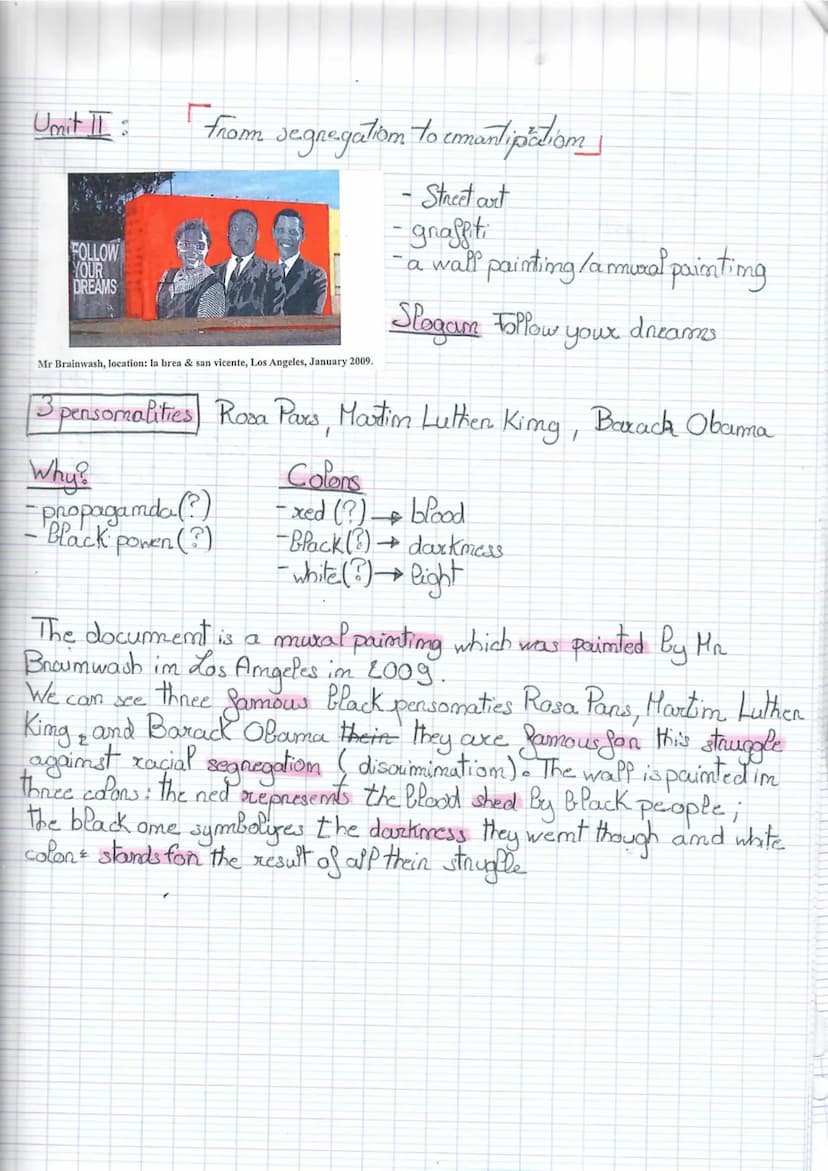 Unit II :
"From segregation to emantipation"
FOLLOW
YOUR
DREAMS
- Street art
- graffiti
- a wall painting/a mural painting
Slogan Follow your dreams
Mr Brainwash, location: la brea & san vicente, Los Angeles, January 2009.
3 personalities Rosa Pars, Martin Luther King, Barack Obama
Why?
- propaganda(?)
- Black power(?)
Colors
- red (?) → blood
- Black(?) → darkness
- white(?) → light
The document is a mural painting which was painted by Mr
Brainwash in Los Angeles in 2009.
We can see three famous black personaties Rosa Pars, Martin Luther
King, and Barack Obama their they are famous for this struggle
against racial segregation ( discrimination). The wall is painted in
three colors: the red represents the blood shed by black people;
the black one symbolizes the darkness they went though and white
color stands for the result of all their struggle